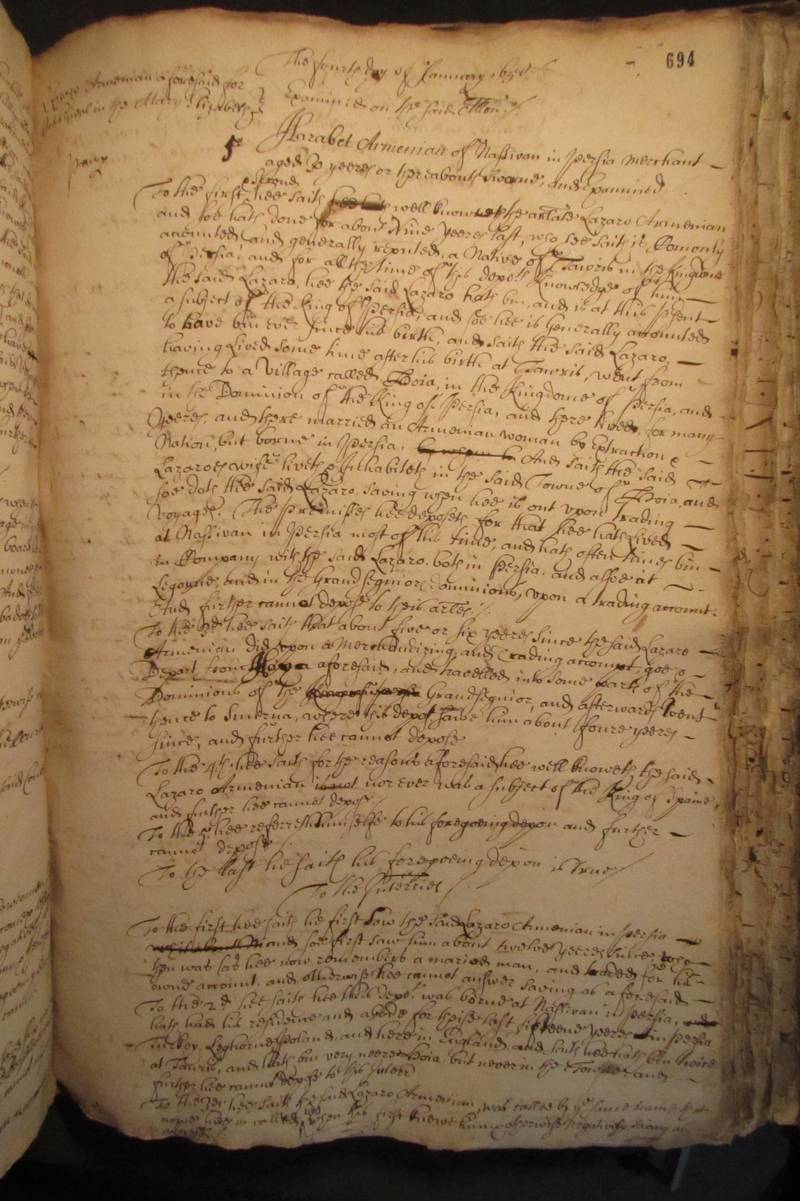 694
The fourth day of January 1655
Examined on the said Alle͠on
Lazaro Armenian aforesaid for
goods in the Mary Elizabeth
5us
Harabet Armenian of Nassivan in Persia Merchant
aged 30 yeeres or thereabouts sworne, and Examined
To the first hee saith hee well knoweth the arlate Lazaro Armenian
and soe hath done for about Nine yeeres last, who hee saith is Comonly
accounted and generally reputed, a Native of Tawris in the kingdome
of Persia, and for all the time of this depots knowledge of him
the said Lazaro, hee the said Lazaro hath bin, and is at this p̱sent
a subiect of the King of Persia, and soe hee is generally accounted
to have bin ever since his birth, and saith the said Lazaro,
having Lived some time after his birth at Tawris, went from
thence to a village called Hoia, in the kingdome of Persia, and
in the Dominion of the King of Persia, and there lived, for many
yeeres, and there married an Armenian woman by Extraction &
Nation, but borne in Persia, And saith the said
Lazaroes wife liveth & Inhabiteth in the said Towne of Hoia, and
soe doth the said Lazaro, saving when hee is out upon trading
voyages. The premisses hee deposeth for that hee hath lived
at Nassivan in Persia most of his time, and hath often times bin
in Company with the said Lazaro, both in Persia, and alsoe at
Legorne, and in the Grand Segniors dominions, upon a trading account.
And further cannot depose to this arle.
To the hee saith that about five or six yeeres since the said Lazaro
Armenian did upon a Merchandizing, and Trading account, goe &
Depart from Hoya aforesaid, and travelled into some parts of the
Dominions of the Grand Segnior, and afterwards went
thence to Smirna, where this depot saw him about foure yeeres
since, and further hee cannot depose
To the 4th hee saith for the reasons aforesaid hee well knoweth the said
Lazaro Armenian is not nor ever was a subiect of the King of Spaine,
and further hee cannot depose
To the hee referreth himselfe to his foregoeing depon and further
cannot depose
To the last hee saith his foregoeing depon is true
To the Interries
To the first hee saith hee first saw the said Lazaro Armenian in Persia
and soe first saw him about twelve yeeres since,
then was (as hee now remembers) a maried man, and traded for his
owne account, and otherwise hee cannot answer saving as aforesaid
To the 2d hee saith hee this depot was borne at Nassivan in Persia,
hath had his residence and abode for theise last fifteene yeeres in Persia
Turkey, Leghorne, Poland, and here in England, and saith hee hath bin twice
at Tawris, and hath bin very neere Hoia, but never in the Towne and
further hee cannot depose to this Interr
To the 3d hee saith the said Lazaro Armenian, was called by the same name that
nowe hee is called, when hee first knewe him, otherwise Negatively saving as
aforesaid